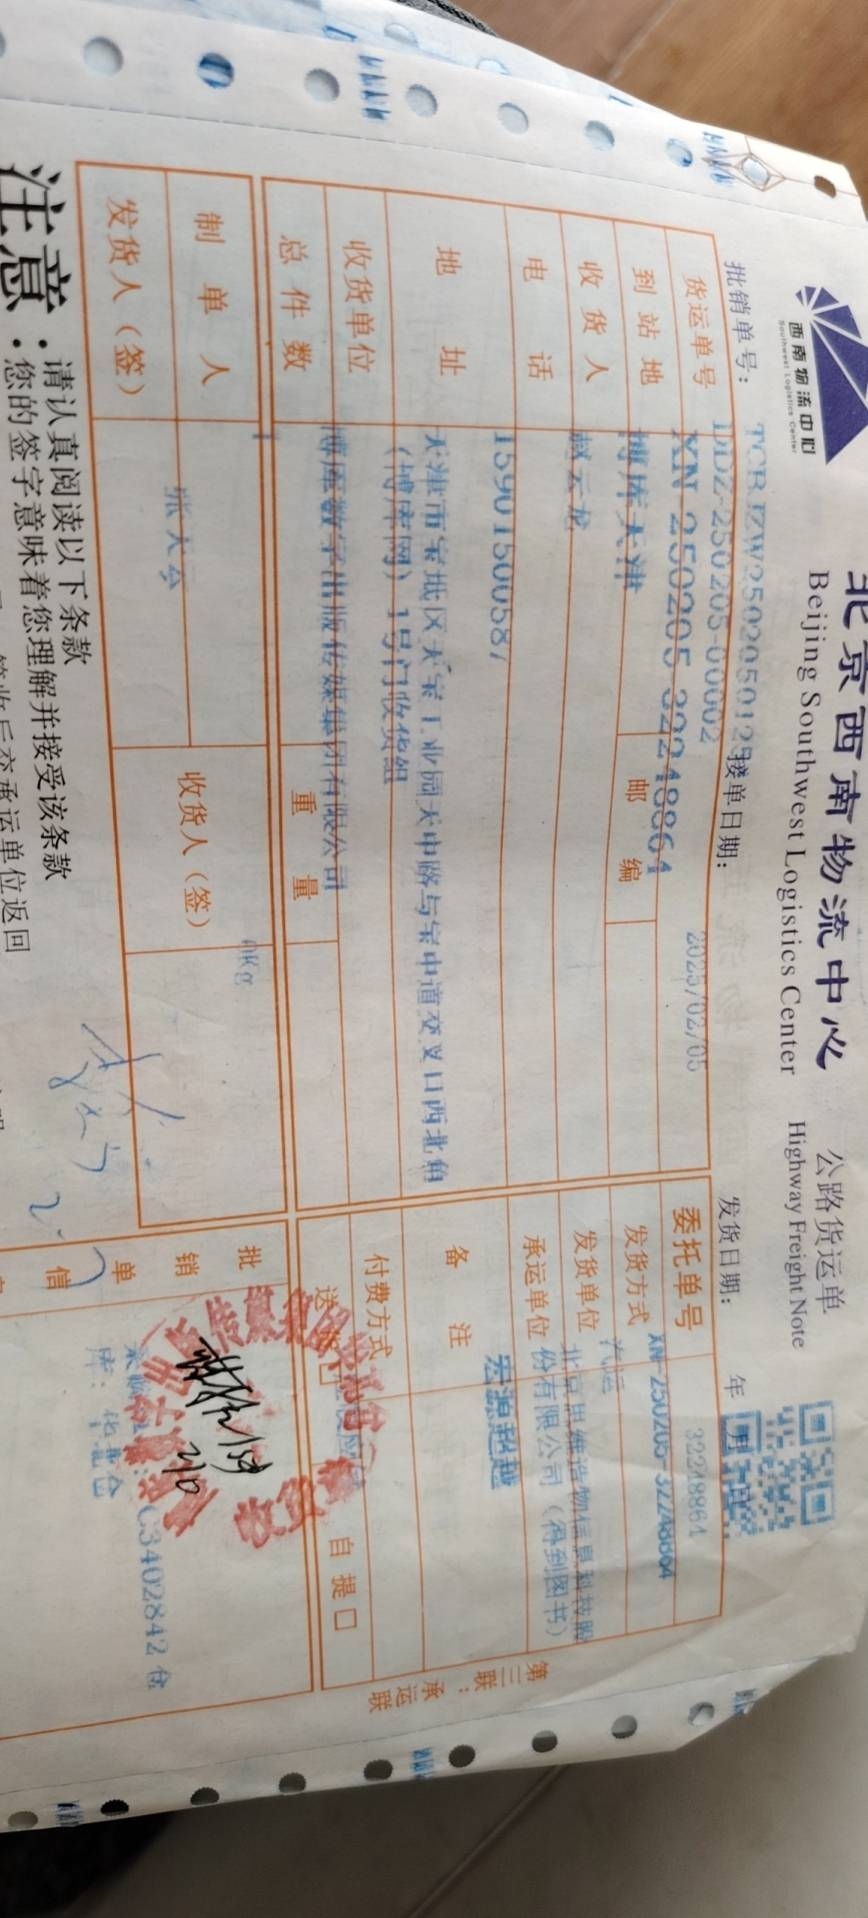 西南物流中心
Southwest Logistics Center
北京西南物流中心
Beijing Southwest Logistics Center
公路货运单
Highway Freight Note
批销单号：
TCBJZW250205012
DDZ-250205-00002
接单日期：
2025/02/05
发货日期：
年 月 日
货运单号
XN-250205-32248864
委托单号
32248864
XN-250205-32248864
到站地
博库天津
邮编
发货方式
汽运
收货人
赵云龙
发货单位
北京思维造物信息科技股份有限公司（得到图书）
电话
15901500587
承运单位
宏源超越
地址
天津市宝坻区天宝工业园天中路与宝中道交叉口西北角（博库网）1号门收货组
备注
收货单位
博库数字出版传媒集团有限公司
付费方式
总件数
1
重量
0Kg
送
自提
制单人
张大会
收货人（签）
批销单信
C3402842 仓库：
发货人（签）
2/10
第三联：承运联
注意：
请认真阅读以下条款
您的签字意味着您理解并接受该条款
签收后交承运单位返回